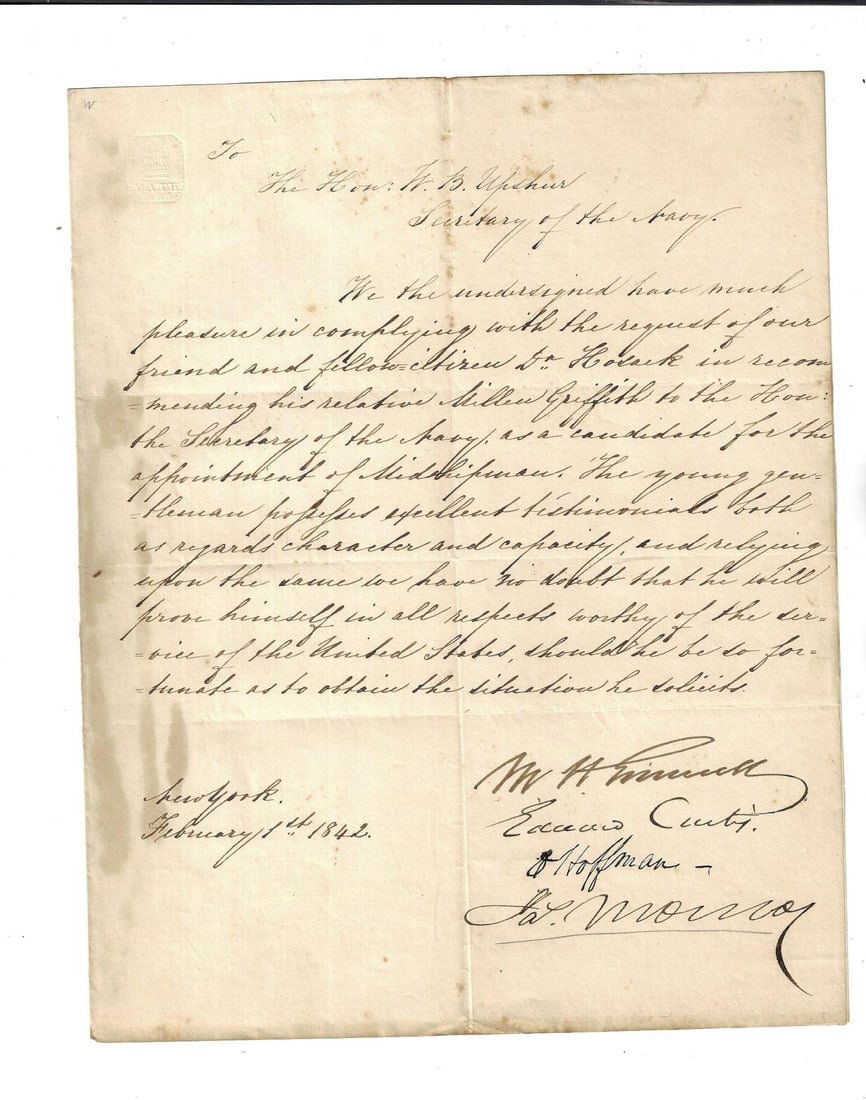 W
To
The Hon: W. B. Upshur
Secretary of the Navy.
We the undersigned have much
pleasure in complying with the request of our
friend and fellow=citizen Dr Hosack in recom
=mending his relative Millen Griffith to the Hon:
the Secretary of the Navy, as a candidate for the
appointment of Midshipman. The young gen=
=tleman possesses excellent testimonials both
as regards character and capacity, and relying
upon the same we have no doubt that he will
prove himself in all respects worthy of the ser=
=vice of the United States, should he be so for=
=tunate as to obtain the situation he solicits.
M H Grinnell
New York.
February 1st. 1842.
Edward Curtis.
Hoffman
Jas. Monroe